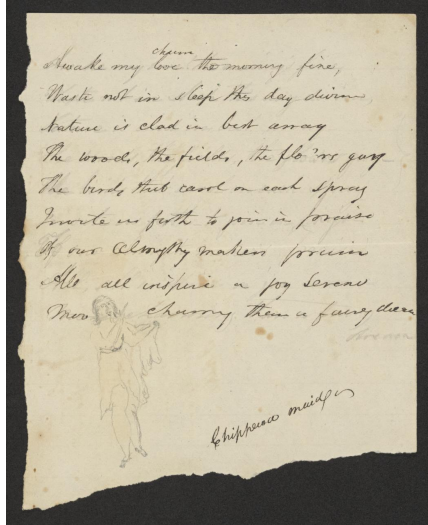 charm
Awake my love the morning fine,
Waste not in sleep this day divine
Nature is clad in best array
The woods, the fields, the flo'rs gay
The birds that carol on each spray
Invite us forth to join in praise
Of our Almighty makers praise
All all inspire a joy serene
More charming than a fairy dream
Chippewa maid